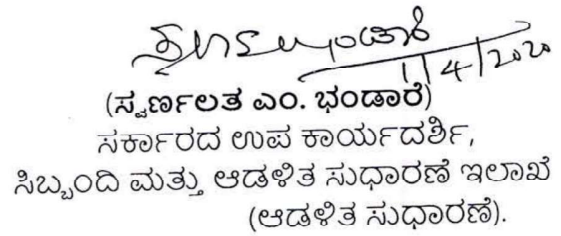 1/4/2020
(ಸ್ವರ್ಣಲತ ಎಂ. ಭಂಡಾರೆ)
ಸರ್ಕಾರದ ಉಪ ಕಾರ್ಯದರ್ಶಿ,
ಸಿಬ್ಬಂದಿ ಮತ್ತು ಆಡಳಿತ ಸುಧಾರಣೆ ಇಲಾಖೆ
(ಆಡಳಿತ ಸುಧಾರಣೆ).